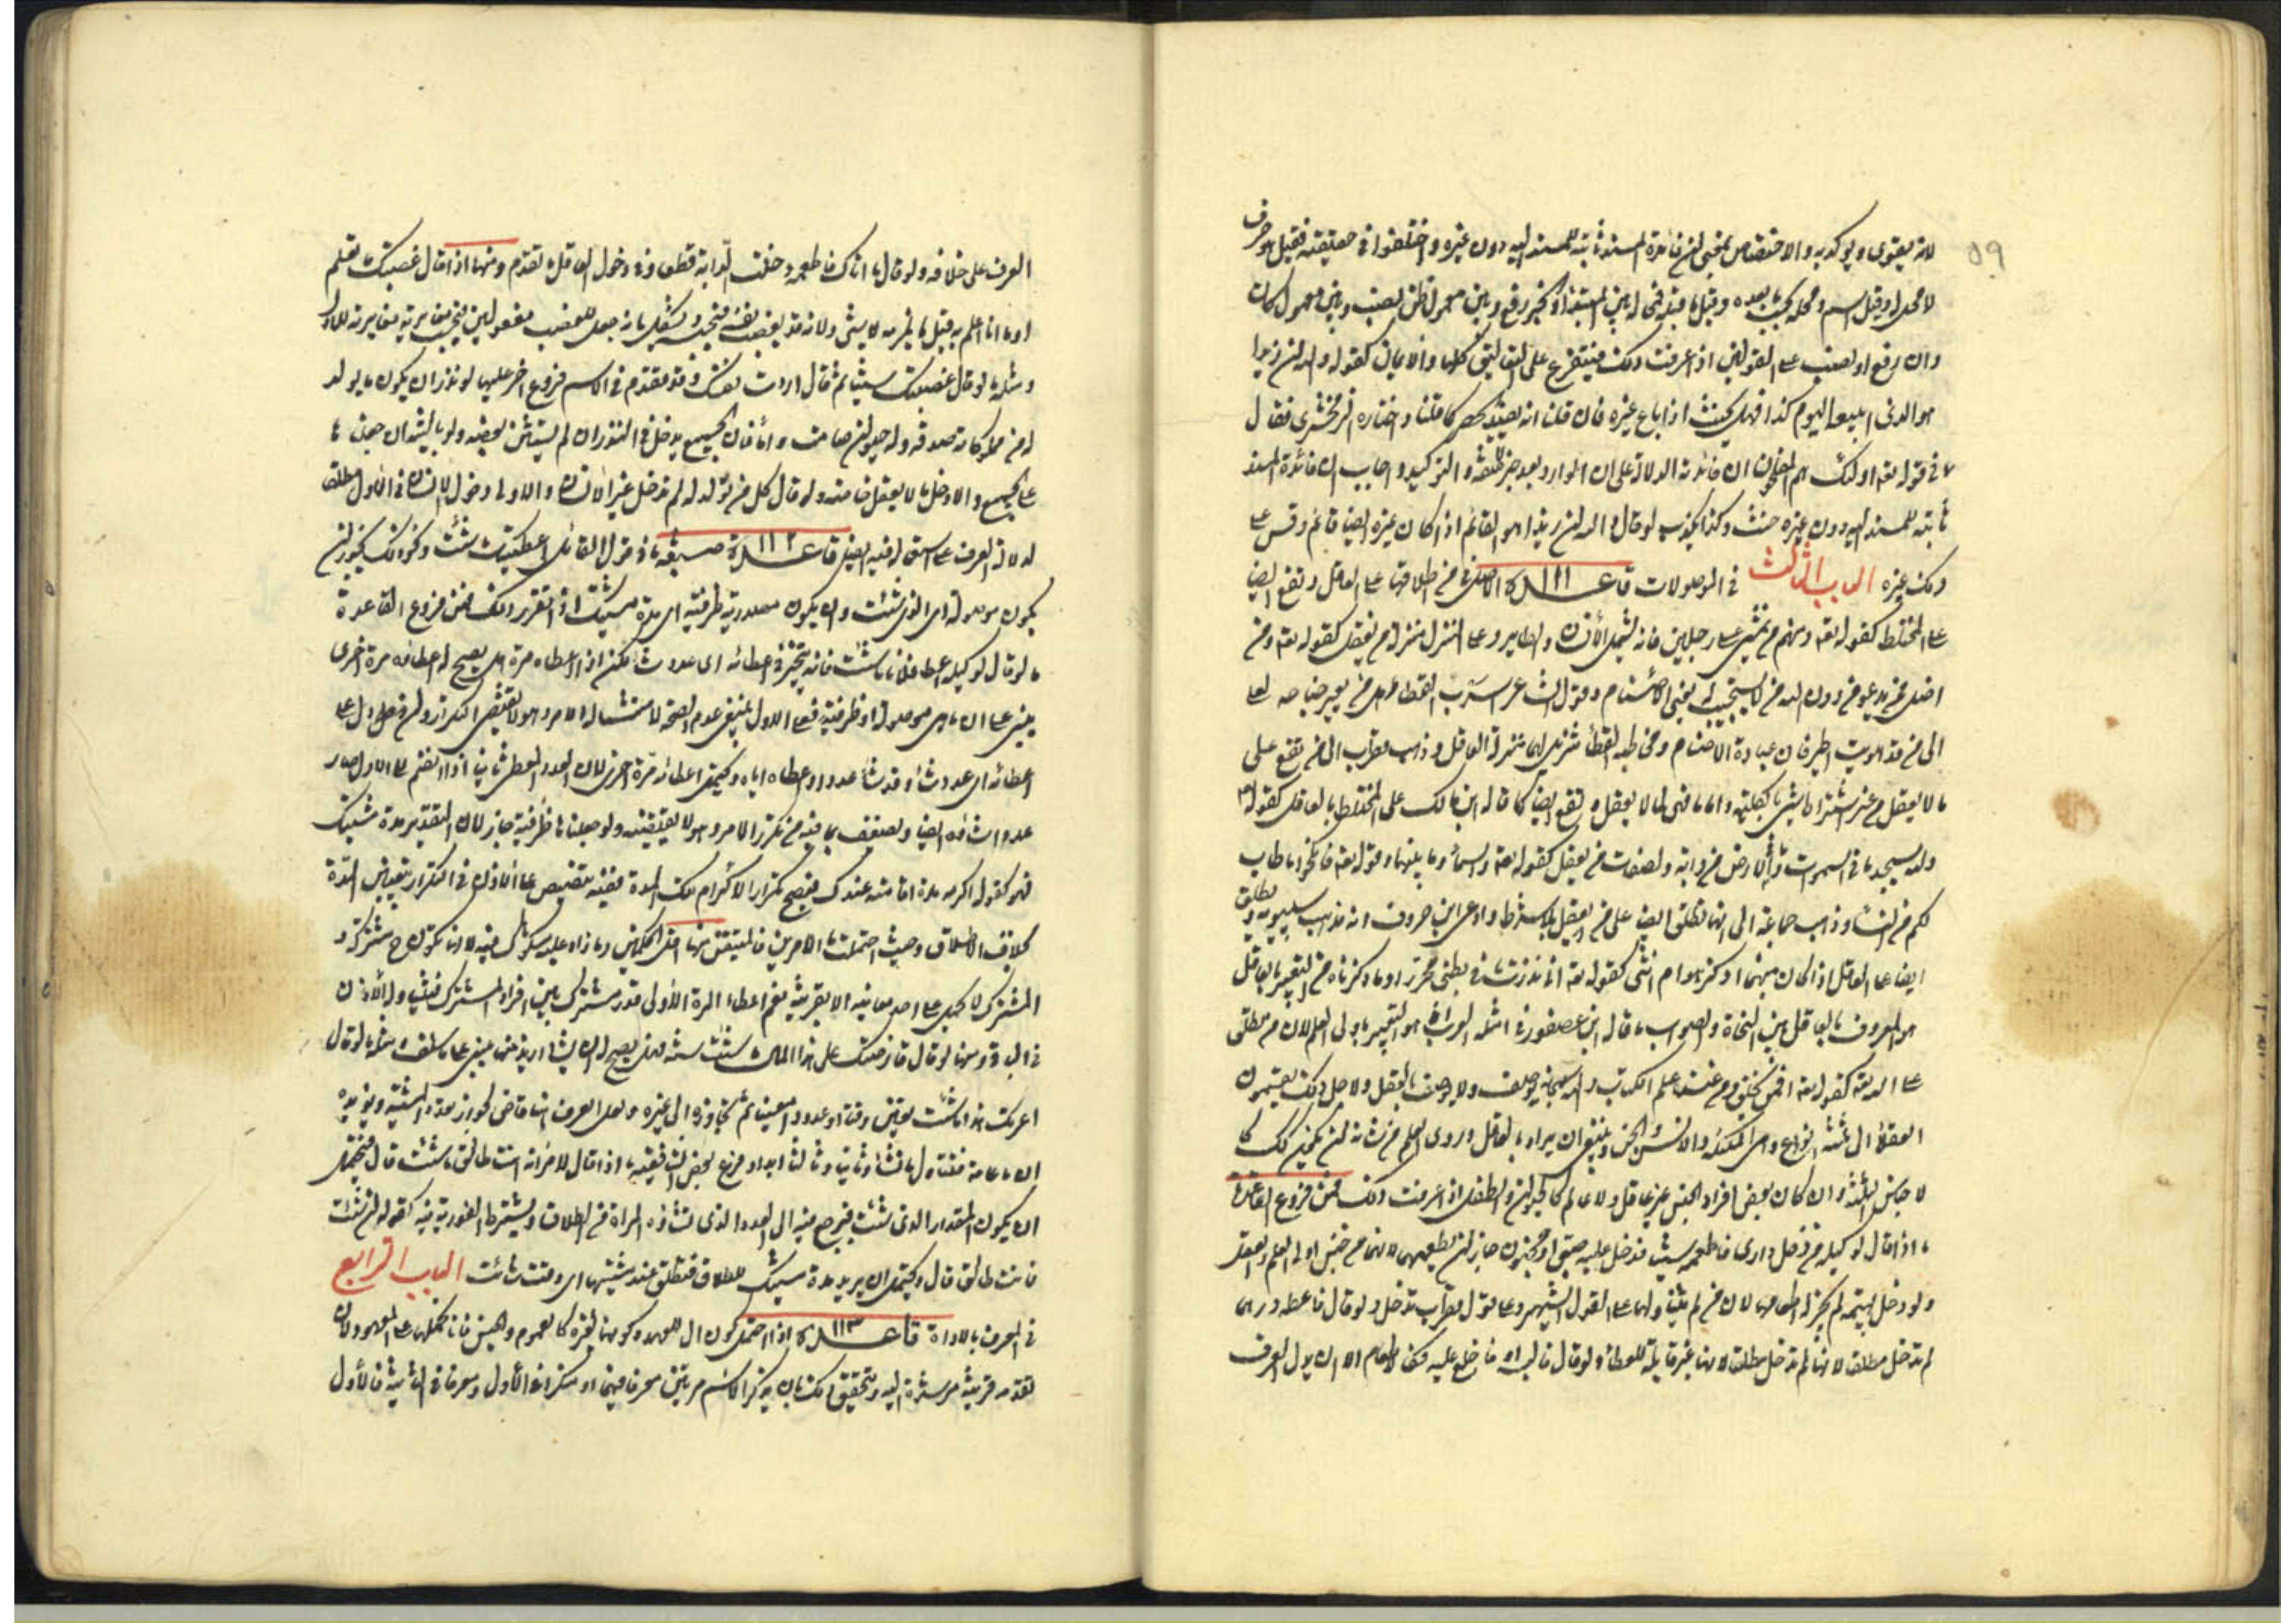 ٥٩
لانه يقوى ويوكد به والاختصاص بمعنى ان فائدة المسند ثابتة للمسند اليه دون غيره واختلفوا في حقيقته فقيل هو حرف
لا محل له وقيل اسم ومحله بحسب ما بعده وقيل ما قبله فمحله بين المبتدأ والخبر رفع وبين معمولى ظن نصب وبين معمولى كان
وان رفع او نصب على القولين اذا عرفت ذلك فيتفرع على التعاليق كلها والايمان كقوله والله ان زيدا
هو الذى ابيعه اليوم كذا فهل يحنث اذا باع غيره فان قلنا انه يفيد الحصر كما قلنا واختاره الزمخشرى فقال
في قوله تعالى اولئك هم المفلحون ان فائدته الدلالة على ان الوارد بعد خبر لا صفة والتوكيد وايجاب ان فائدة المسند
ثابتة للمسند اليه دون غيره حنث وكذا يكذب لو قال والله ان زيدا هو القائم اذا كان غيره ايضا قائم وقس على
ذلك غيره الباب الثالث في الموصولات قاعدة ١١١ الاصل في من اطلاقها على العاقل وتقع ايضا
على المختلط كقوله تعالى ومنهم من يمشى على رجلين فانه يشمل الانسان والطاير وعلى المنزل منزلة من يعقل كقوله تعالى ومن
اضل ممن يدعو من دون الله من لا يستجيب له يعنى الاصنام وقول الشاعر اسرب القطا هل من يعير جناحه لعلى
الى من قد هويت اطير فان عبادة الاصنام ومخاطبة القطا تنزيل لها منزلة العاقل وذهب قطرب الى من تقع على
ما لا يعقل من غير اشتراط شىء بالكلية واما ما فهى لما لا يعقل وتقع ايضا كما قاله ابن مالك على المختلط بالعاقل كقوله تعالى
ولله يسجد ما في السموات وما في الارض من دابة ولصفات من يعقل كقوله تعالى والسماء وما بناها وقوله تعالى فانكحوا ما طاب
لكم من النساء وذهب جماعة الى انها تطلق ايضا على من يعقل بلا شرط وادعى ابن خروف انه مذهب سيبويه وتطلق
ايضا على العاقل اذا كان مبهما اذكر هو ام انثى كقوله تعالى انى نذرت لك ما في بطنى محررا وما ذكرناه من التعبير بالعاقل
هو المعروف بالعاقل بين النحاة والصواب ما قاله ابن عصفور في امثلة المقرب هو التعبير باولى العلم لان من يطلق
على الله تعالى كقوله تعالى افمن يخلق ومن عنده علم الكتاب والله سبحانه يوصف بالعلم ولا يوصف بالعقل ولاجل ذلك يقسمون
العقلاء الى ثلثة انواع وهى الملائكة والانس والجن وينبغى ان يراد بالعاقل وذوى العلم من شانه ان يكون كذلك كما
لاجناس الثلثة وان كان بعض افراد الجنس غير عاقل ولا عالم كالمجنون والطفل اذا عرفت ذلك فمن فروع القاعدة
ما اذا قال لوكيله من دخل دارى فاطعمه شيئا فدخل عليه صبى او مجنون جاز ان يطعمهما لانهما من جنس اولى العلم والعقل
ولو دخل بهيمة لم يجز له اطعامها لان من لم يتناولها على القول الشهير وعلى قول قطرب تدخل ولو قال فاعطه درهما
لم تدخل مطلقا لانها لم تدخل مطلقا لانها غير قابلة للعطاء ولو قال فالبسه او فاخلع عليه فكالاطعام الا ان يدل العرف
العرف على خلافه ولو قال ما اتاك فاطعمه دخلت الدابة قطعا وفي دخول العاقل ما تقدم ومنها اذا قال غصبتك ما تعلم
او ما انا اعلم به قيل لا يلزمه لا شىء ولانه قد يغصب نفسه فيحبسه ويشكل بانه جعل للغصب مفعولين فيجب مغايرته للاول
ومثله ما لو قال غصبتك شيئا ثم قال اردت نفسك وقد تقدم في الاسم فروع اخر عليها لو نذر ان يكون ما يولد
له من مملوكاته صدقة وله حيوان صامت واماء فان الجميع يدخل في النذر ان لم يستثن بعضه ولو بالنية لان حمل ما
على الجميع والا دخل ما لا يعقل خاصة ولو قال كل من تولد له لم تدخل غير الانسان والاولى دخول الانسان في الاول مطلقا
لدلالة العرف على استعماله فيه ايضا قاعدة ١١٢ صيغة ما في قول القائل اعطيتك ما شئت ونحو ذلك يجوز ان
يكون موصولة اى الذى شئت وان يكون مصدرية ظرفية اى مدة مشيتك اذا تقرر ذلك فمن فروع القاعدة
ما لو قال لوكيله اعط فلانا ما شئت فانه يتخير في اعطائه اى عدد شاء لكن اذا اعطاه مرة هل يصح له اعطاؤه مرة اخرى
يبنى على ان ما هى موصولة او ظرفية فعلى الاول ينبغى عدم الصحة لامتثاله الامر وهو لا يقتضى التكرار ولان فصل دل على
اعطائه اى عدد شاء وقد شاء عددا واعطاه اياه ويحتمل اعطائه مرة اخرى لان العدد المعطى ثانيا اذا انضم الى الاول صار
عددا شاءه ايضا ويضعف بما فيه من تكرر الامر وهو لا يقتضيه ولو جعلنا ما ظرفية جاز لان التقدير مدة مشيتك
فهو كقوله اكرمه مدة اقامته عندك فيصح تكرار الاكرام تلك المدة ففيه تنصيص على الاذن في التكرار بتعيين المدة
بخلاف الاطلاق وحيث احتملت ما الامرين فالمتيقن منها اقل الحكمين وما زاد عليه مشكوك فيه لانها تكون ح مشتركة و
المشترك لا يحمل على احد معانيه الا بقرينة نعم اعطاء المرة الاولى قدر مشترك بين افراد المشترك فيثبت ولو الاذن
في الباقى ومنها لو قال قارضتك على هذا المال ما شئت سنة فهل يصح له ان يشاء ازيد منها يبنى على ما سلف ومثله ما لو قال
اعرتك هذا ما شئت تعيين وقتا او عددا معينا ثم تجاوزه الى غيره ولعل العرف هنا قاضى بجواز تعدد المشية ويؤيده
ان ما عامة فتتناول ما شاء ثانيا وثالثا ابدا ومن فروع بعض الشافعية ما اذا قال لامراته انت طالق ما شئت قال فيحتمل
ان يكون المقدار الذى شئت فيرجع فيه الى العدد الذى تشاؤه المراة من الطلاق ويشترط الفورية فيه كقوله ان شئت
فانت طالق قال ويحتمل ان يريد مدة مشيتك للطلاق فتطلق عند مشيتها اى وقت شائت الباب الرابع
في المعرف بالاداة قاعدة ١١٣ اذا احتمل كون ال للعهد وكونها لغيره كالعموم والجنس فانا نحملها على المعهود لان
تقدمه قرينة مرشدة اليه ويتحقق ذلك بان يذكر الاسم مرتين معرفا فيهما او منكرا في الاول ومعرفا في الثانية فالاول